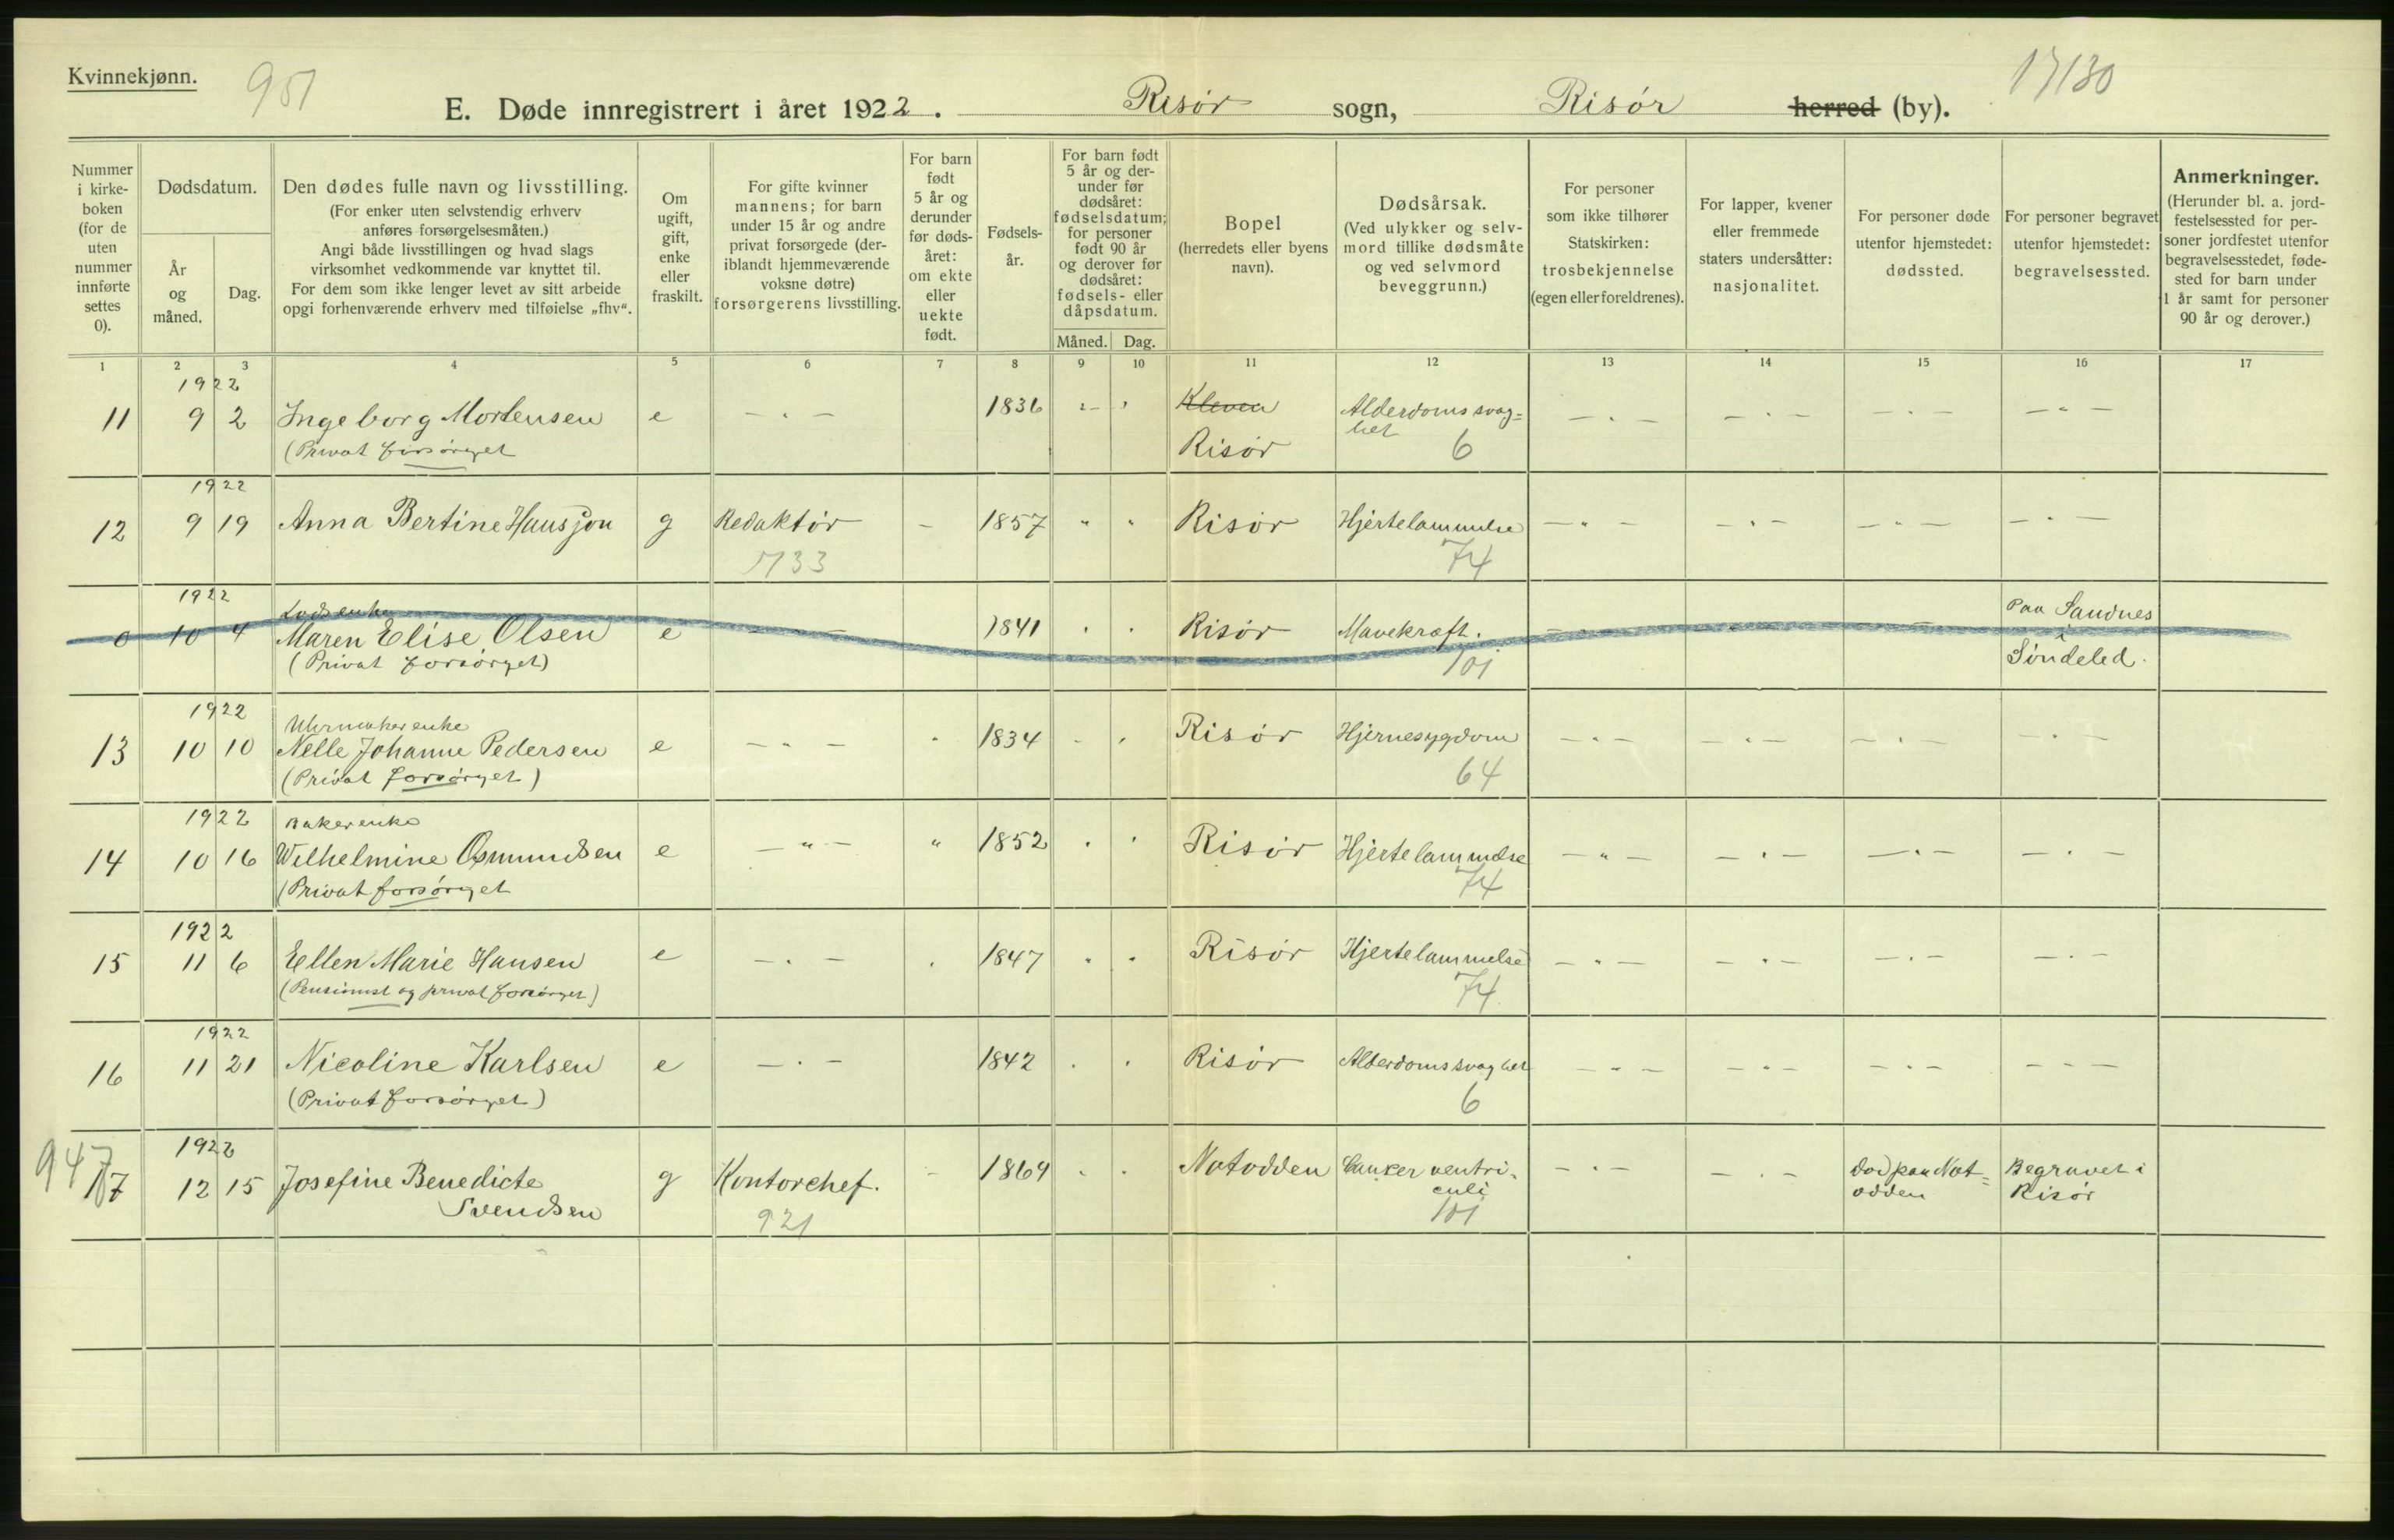 Kvinnekjønn.
951
17130
E. Døde innregistrert i året 1922. Risør sogn, Risør herred (by).
Nummer i kirke-boken (for de uten nummer innførte settes 0).
Dødsdatum.
År og måned.
Dag.
Den dødes fulle navn og livsstilling.
(For enker uten selvstendig erhverv
anføres forsørgelsesmåten.)
Angi både livsstillingen og hvad slags
virksomhet vedkommende var knyttet til.
For dem som ikke lenger levet av sitt arbeide
opgi forhenværende erhverv med tilføielse „fhv“.
Om
ugift,
gift,
enke
eller
fraskilt.
For gifte kvinner
mannens; for barn
under 15 år og andre
privat forsørgede (der-
iblandt hjemmeværende
voksne døtre)
forsørgerens livsstilling.
For barn
født
5 år og
derunder
før døds-
året:
om ekte
eller
uekte
født.
Fødsels-
år.
For barn født
5 år og der-
under før
dødsåret:
fødselsdatum;
for personer
født 90 år
og derover før
dødsåret:
fødsels- eller
dåpsdatum.
Måned. Dag.
Bopel
(herredets eller byens
navn).
Dødsårsak.
(Ved ulykker og selv-
mord tillike dødsmåte
og ved selvmord
beveggrunn.)
For personer
som ikke tilhører
Statskirken:
trosbekjennelse
(egen eller foreldrenes).
For lapper, kvener
eller fremmede
staters undersåtter:
nasjonalitet.
For personer døde
utenfor hjemstedet:
dødssted.
For personer begravet
utenfor hjemstedet:
begravelsessted.
Anmerkninger.
(Herunder bl. a. jord-
festelsessted for per-
soner jordfestet utenfor
begravelsesstedet, føde-
sted for barn under
1 år samt for personer
90 år og derover.)
1 2 3 4 5 6 7 8 9 10 11 12 13 14 15 16 17
1922
11 9 2 Ingeborg Mortensen e 1836 Kleven Alderdomssvag=
het
(Privat forsørget Risør 6
1922
12 9 19 Anna Bertine g Redaktør 1857 Risør Hjertelammelse
1733 74
1922
Lodsenke Paa Sandnes
0 10 4 Maren Elise Olsen e 1841 Risør Mavekræft. i
(Privat forsørget) 101 Søndeled.
1922
Uhrmakerenke
13 10 10 Nelle Johanne Pedersen e 1834 Risør Hjernesygdom
(Privat forsørget) 64
1922 Bakerenke
14 10 16 Wilhelmine Osmundsen e 1852 Risør Hjertelammelse
(Privat forsørget 74
1922
15 11 6 Ellen Marie Hansen e 1847 Risør Hjertelammelse
(Pensionist og privat forsørget) 74
1922
16 11 21 Nicoline Karlsen e 1842 Risør Alderdomssvaghet
(Privat forsørget) 6
947
1922
17 12 15 Josefine Benedicte g Kontorchef. 1869 Notodden Cancer ventri- Død paa Not= Begravet i
Svendsen culi odden Risør
921 101